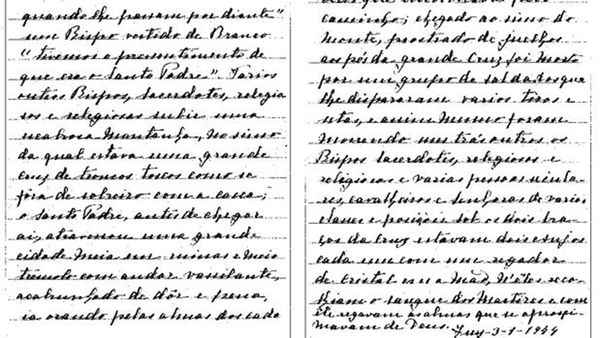 quando lhe passam por diante"
um Bispo vestido de Branco
"tivemos o pressentimento de
que era o Santo Padre". Varios
outros Bispos, Sacerdotes, religio
sos e religiosas subir uma
escabrosa montanha, no cimo
da qual estava uma grande
Cruz de troncos toscos como se
fora de sobreiro com a casca;
o Santo Padre, antes de chegar
aí, atravessou uma grande
cidade meia em ruinas e meio
trémulo com andar vacilante,
acabrunhado de dôr e pena,
ia orando pelas almas dos cada
que encontrava pelo
caminho; chegado ao cimo do
monte, prostrado de juelhos
aos pés da grande Cruz foi morto
por um grupo de soldados que
lhe dispararam varios tiros e
setas, e assim mesmo foram
morrendo uns trás outros os
Bispos Sacerdotes, religiosos e
religiosas e varias pessoas secula
res, cavalheiros e senhoras de varias
classes e posições. Sob os dois bra
ços da Cruz estavam dois Anjos
cada um com um regador
de cristal em a mão, n'êles reco
lhiam o sangue dos Martires e com
êle regavam as almas que se aproxi
mavam de Deus. Tuy-3-1-1944